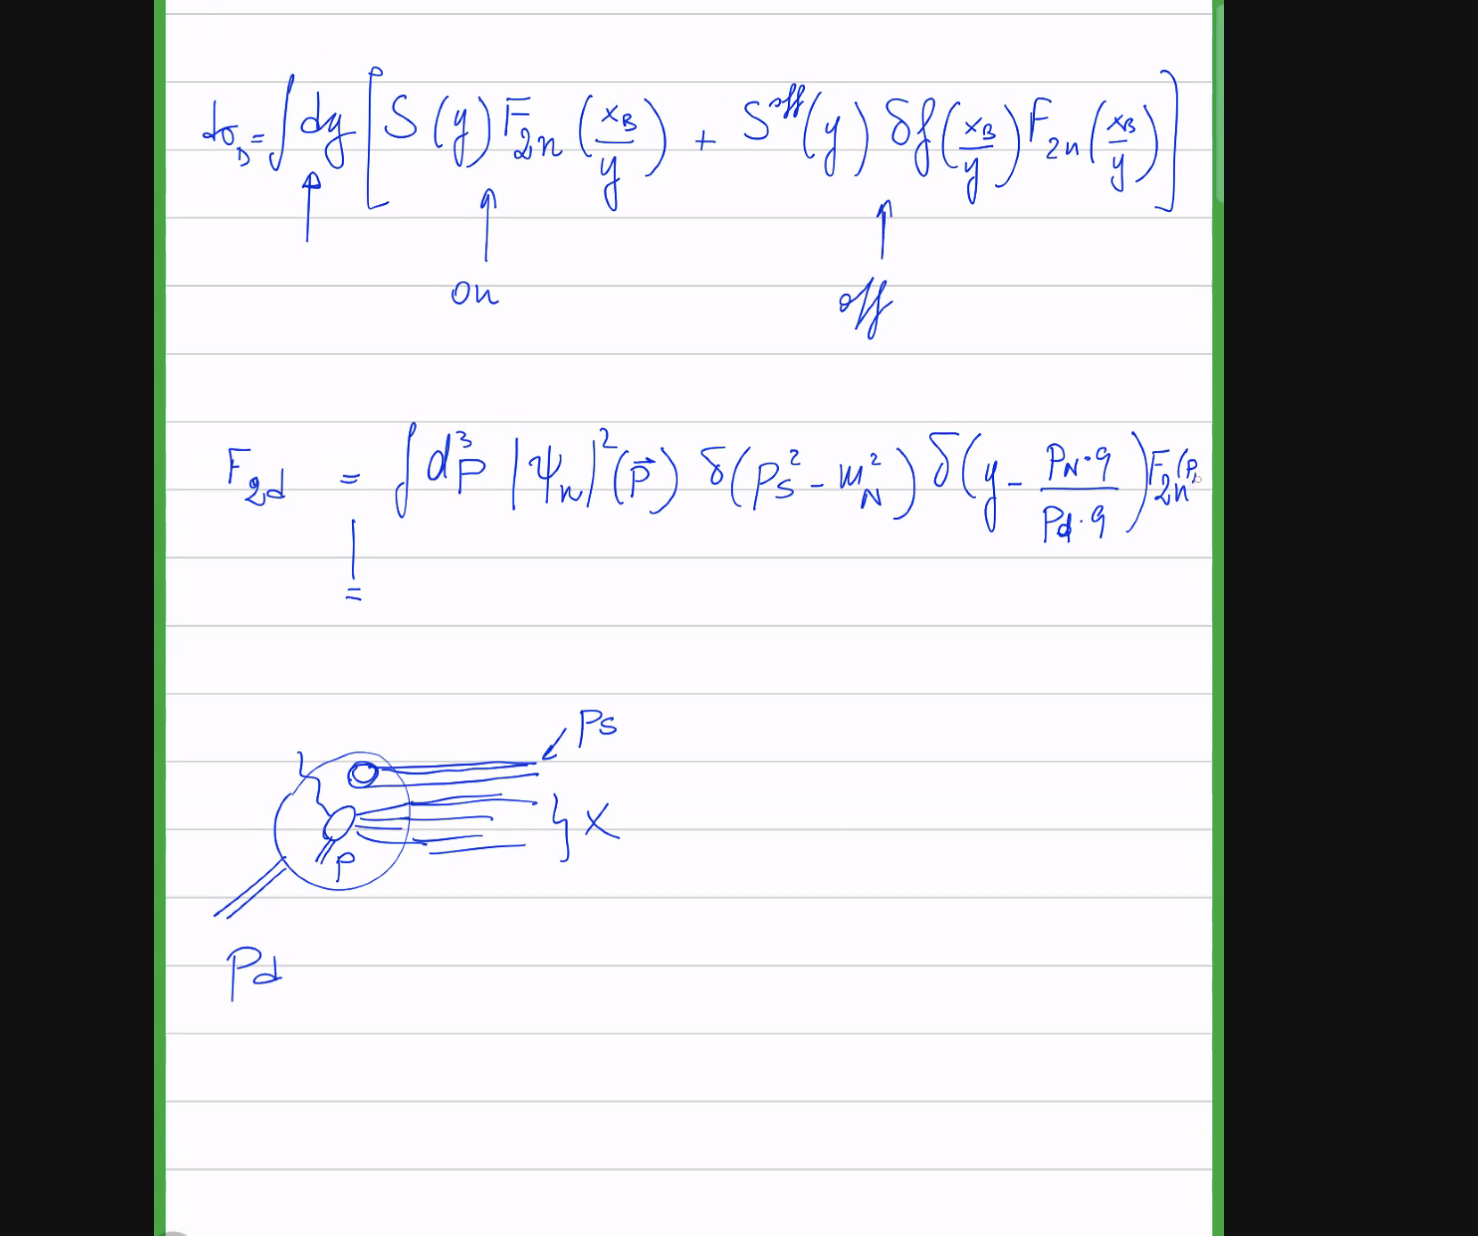 dσ_D = ∫ dy [ S(y) F_{2n}(x_B/y) + S^{off}(y) δf(x_B/y) F_{2n}(x_B/y) ]
on off
F_{2d} = ∫ d³p |ψ_n|²(p⃗) δ(p_s² - m_N²) δ(y - p_N·q / p_d·q) F_{2n}(p
=
p_s
} X
p
p_d